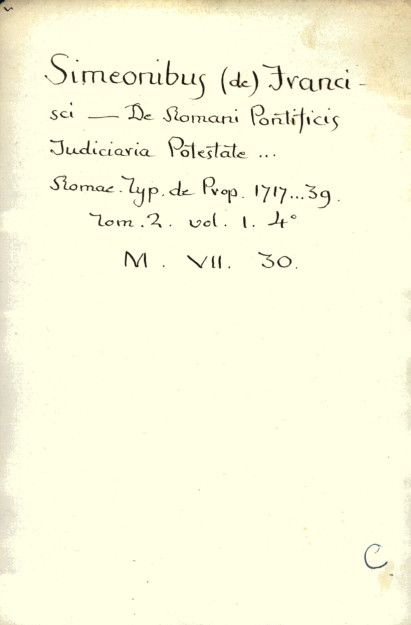 Simeonibus (de) Franci-
sci — De Romani Pontificis
Judiciaria Potestate ...
Romae. Typ. de Prop. 1717...39.
Tom. 2. vol. 1. 4°
M. VII. 30.
C